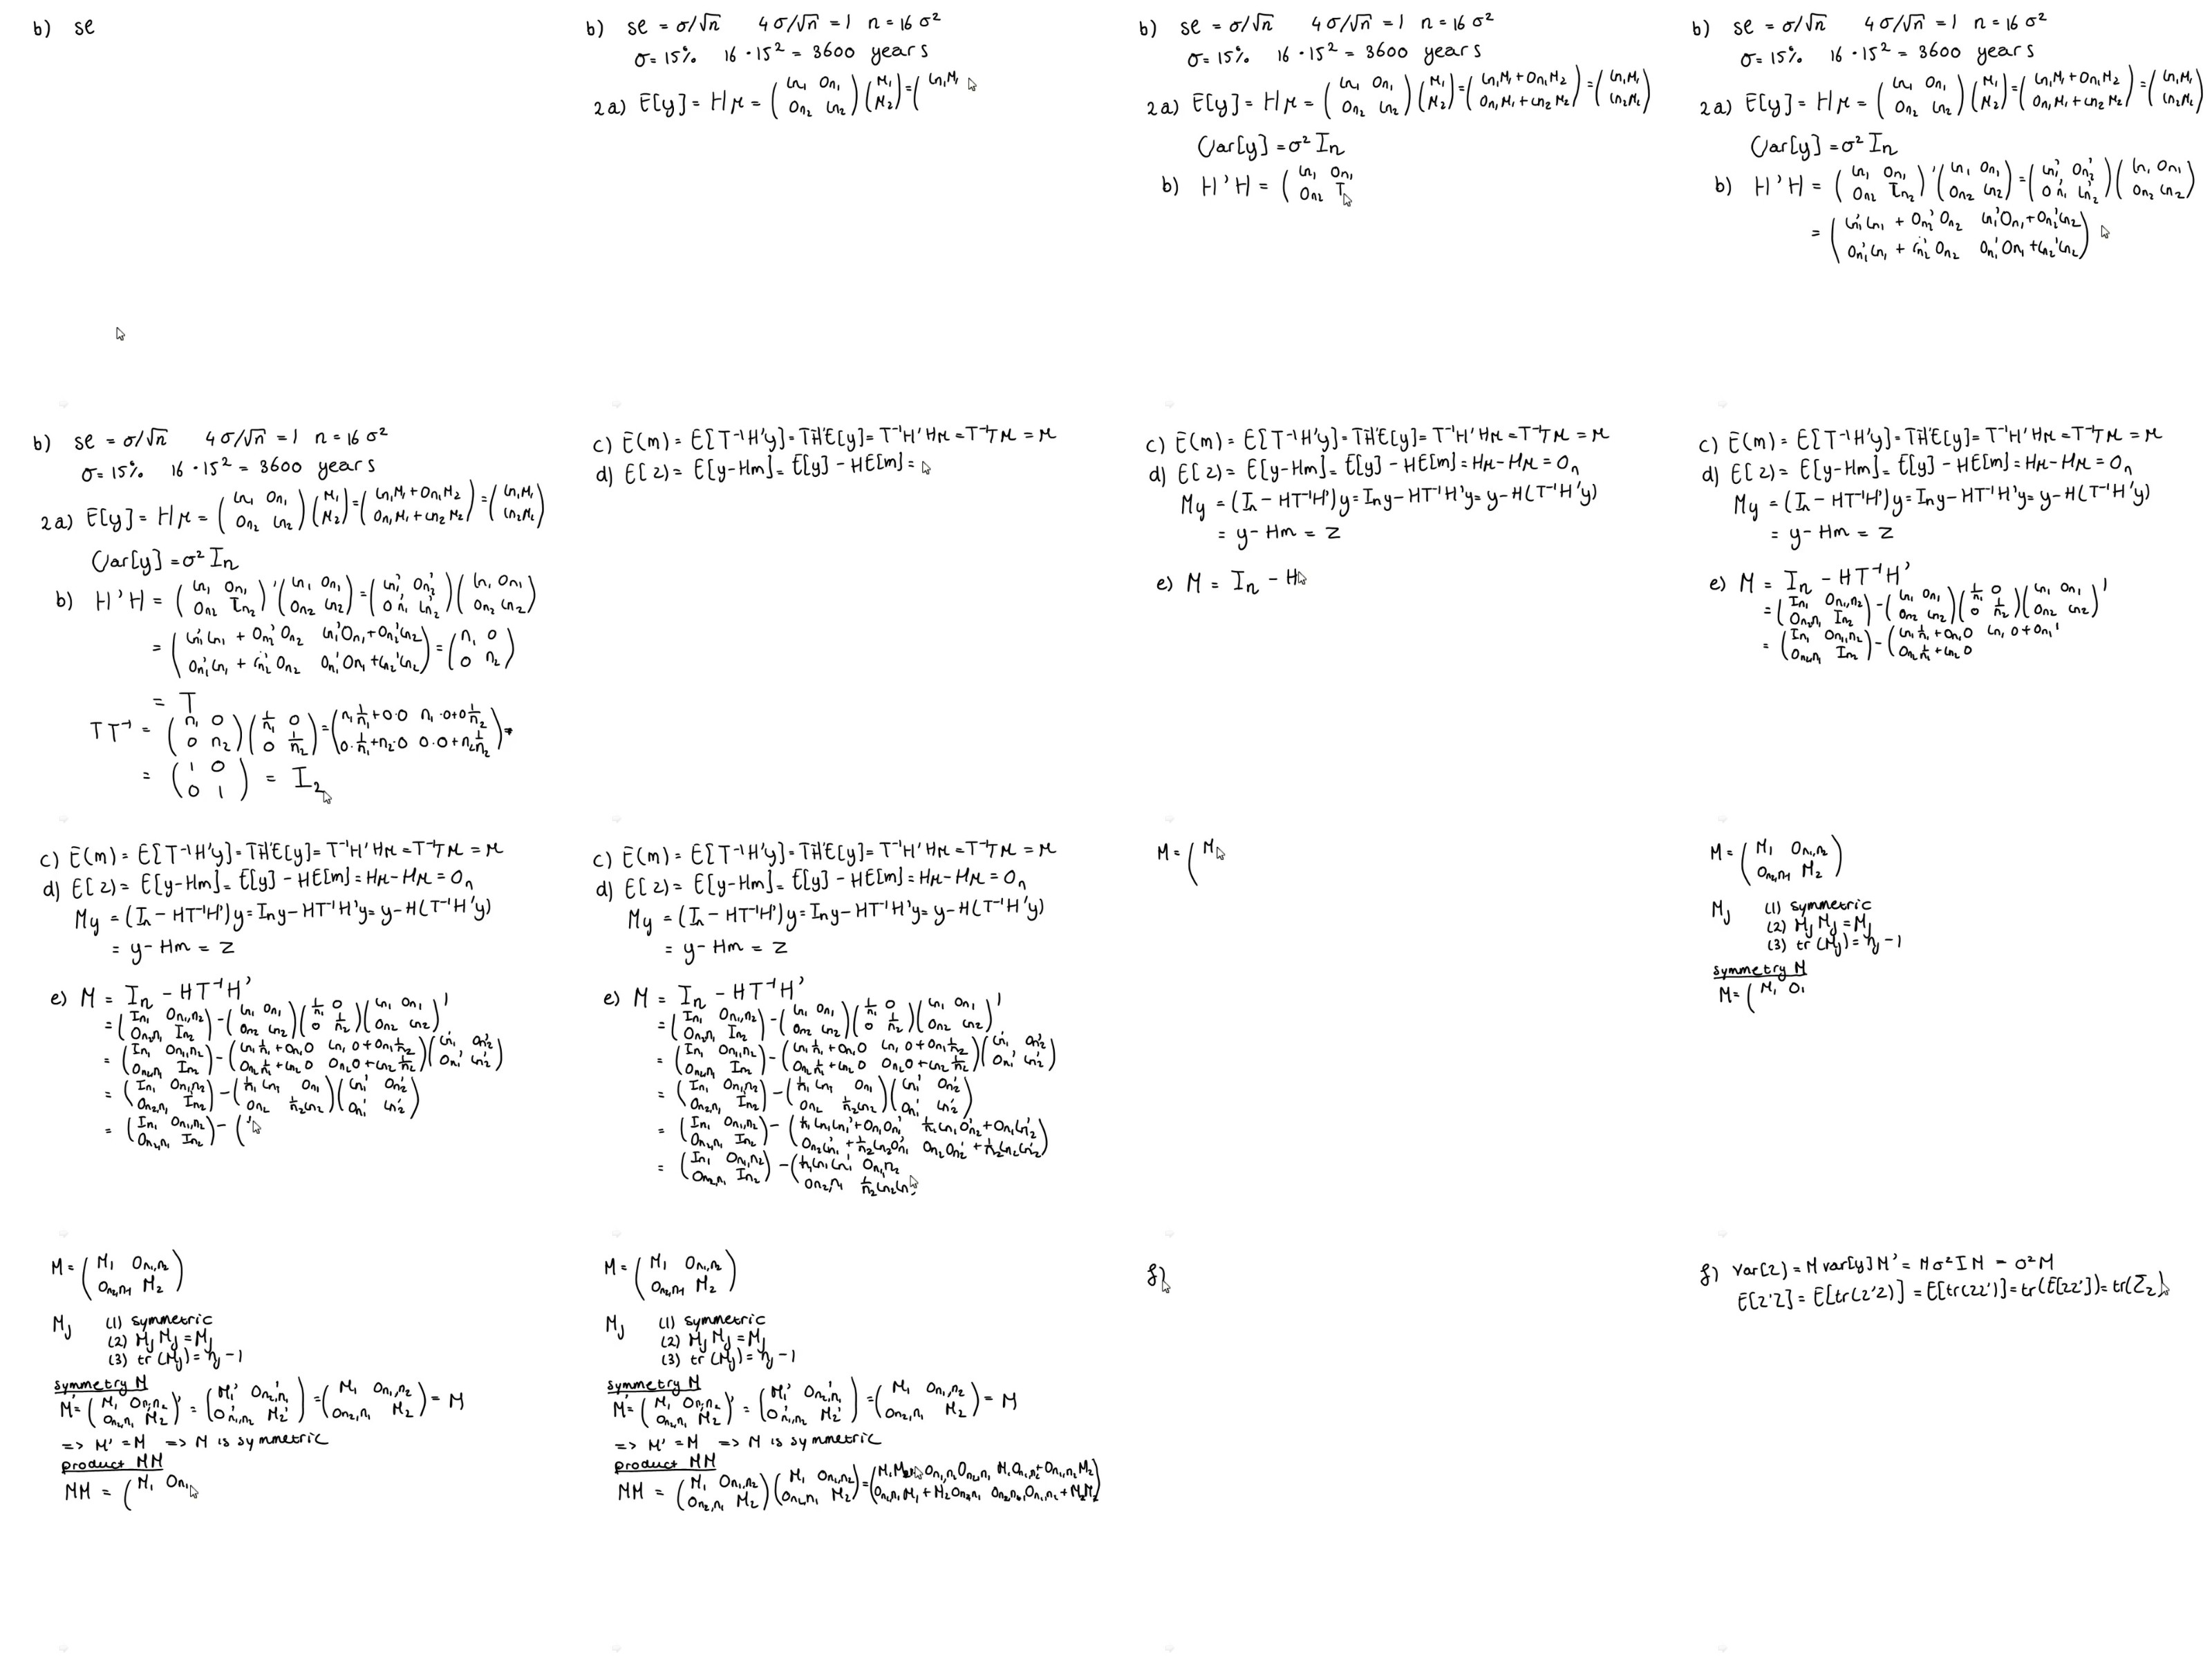 b) se
b) se = σ/√n 4σ/√n = 1 n = 16 σ²
σ = 15% 16 · 15² = 3600 years
2a) E[y] = Hμ = (ιn₁ 0n₁ 0n₂ ιn₂)(μ₁ μ₂) = (ιn₁μ₁
b) se = σ/√n 4σ/√n = 1 n = 16 σ²
σ = 15% 16 · 15² = 3600 years
2a) E[y] = Hμ = (ιn₁ 0n₁ 0n₂ ιn₂)(μ₁ μ₂) = (ιn₁μ₁ + 0n₁μ₂ 0n₁μ₁ + ιn₂μ₂) = (ιn₁μ₁ ιn₂μ₂)
Var[y] = σ² In
b) H'H = (ιn₁ 0n₁ 0n₂ I
b) se = σ/√n 4σ/√n = 1 n = 16 σ²
σ = 15% 16 · 15² = 3600 years
2a) E[y] = Hμ = (ιn₁ 0n₁ 0n₂ ιn₂)(μ₁ μ₂) = (ιn₁μ₁ + 0n₁μ₂ 0n₁μ₁ + ιn₂μ₂) = (ιn₁μ₁ ιn₂μ₂)
Var[y] = σ² In
b) H'H = (ιn₁ 0n₁ 0n₂ ιn₂)'(ιn₁ 0n₁ 0n₂ ιn₂) = (ιn₁' 0n₂' 0n₁' ιn₂')(ιn₁ 0n₁ 0n₂ ιn₂)
= (ιn₁'ιn₁ + 0n₂'0n₂ ιn₁'0n₁ + 0n₂'ιn₂ 0n₁'ιn₁ + ιn₂'0n₂ 0n₁'0n₁ + ιn₂'ιn₂)
b) se = σ/√n 4σ/√n = 1 n = 16 σ²
σ = 15% 16 · 15² = 3600 years
2a) E[y] = Hμ = (ιn₁ 0n₁ 0n₂ ιn₂)(μ₁ μ₂) = (ιn₁μ₁ + 0n₁μ₂ 0n₁μ₁ + ιn₂μ₂) = (ιn₁μ₁ ιn₂μ₂)
Var[y] = σ² In
b) H'H = (ιn₁ 0n₁ 0n₂ ιn₂)'(ιn₁ 0n₁ 0n₂ ιn₂) = (ιn₁' 0n₂' 0n₁' ιn₂')(ιn₁ 0n₁ 0n₂ ιn₂)
= (ιn₁'ιn₁ + 0n₂'0n₂ ιn₁'0n₁ + 0n₂'ιn₂ 0n₁'ιn₁ + ιn₂'0n₂ 0n₁'0n₁ + ιn₂'ιn₂) = (n₁ 0 0 n₂)
= T
TT⁻¹ = (n₁ 0 0 n₂)(1/n₁ 0 0 1/n₂) = (n₁ 1/n₁ + 0·0 n₁·0 + 0 1/n₂ 0·1/n₁ + n₂·0 0·0 + n₂ 1/n₂)
= (1 0 0 1) = I₂
c) E(m) = E[T⁻¹H'y] = T⁻¹H'E[y] = T⁻¹H'Hμ = T⁻¹Tμ = μ
d) E[z] = E[y-Hm] = E[y] - HE[m] =
c) E(m) = E[T⁻¹H'y] = T⁻¹H'E[y] = T⁻¹H'Hμ = T⁻¹Tμ = μ
d) E[z] = E[y-Hm] = E[y] - HE[m] = Hμ - Hμ = 0n
My = (In - HT⁻¹H')y = Iny - HT⁻¹H'y = y - H(T⁻¹H'y)
= y - Hm = z
e) M = In - H
c) E(m) = E[T⁻¹H'y] = T⁻¹H'E[y] = T⁻¹H'Hμ = T⁻¹Tμ = μ
d) E[z] = E[y-Hm] = E[y] - HE[m] = Hμ - Hμ = 0n
My = (In - HT⁻¹H')y = Iny - HT⁻¹H'y = y - H(T⁻¹H'y)
= y - Hm = z
e) M = In - HT⁻¹H'
= (In₁ 0n₁,n₂ 0n₂,n₁ In₂) - (ιn₁ 0n₁ 0n₂ ιn₂)(1/n₁ 0 0 1/n₂)(ιn₁ 0n₁ 0n₂ ιn₂)'
= (In₁ 0n₁,n₂ 0n₂,n₁ In₂) - (ιn₁ 1/n₁ + 0n₁0 ιn₁0 + 0n₁ 0n₂ 1/n₁ + ιn₂0
c) E(m) = E[T⁻¹H'y] = T⁻¹H'E[y] = T⁻¹H'Hμ = T⁻¹Tμ = μ
d) E[z] = E[y-Hm] = E[y] - HE[m] = Hμ - Hμ = 0n
My = (In - HT⁻¹H')y = Iny - HT⁻¹H'y = y - H(T⁻¹H'y)
= y - Hm = z
e) M = In - HT⁻¹H'
= (In₁ 0n₁,n₂ 0n₂,n₁ In₂) - (ιn₁ 0n₁ 0n₂ ιn₂)(1/n₁ 0 0 1/n₂)(ιn₁ 0n₁ 0n₂ ιn₂)'
= (In₁ 0n₁,n₂ 0n₂,n₁ In₂) - (ιn₁ 1/n₁ + 0n₁0 ιn₁0 + 0n₁ 1/n₂ 0n₂ 1/n₁ + ιn₂0 0n₂0 + ιn₂ 1/n₂)(ιn₁' 0n₂' 0n₁' ιn₂')
= (In₁ 0n₁,n₂ 0n₂,n₁ In₂) - (1/n₁ ιn₁ 0n₁ 0n₂ 1/n₂ ιn₂)(ιn₁' 0n₂' 0n₁' ιn₂')
= (In₁ 0n₁,n₂ 0n₂,n₁ In₂) - (
c) E(m) = E[T⁻¹H'y] = T⁻¹H'E[y] = T⁻¹H'Hμ = T⁻¹Tμ = μ
d) E[z] = E[y-Hm] = E[y] - HE[m] = Hμ - Hμ = 0n
My = (In - HT⁻¹H')y = Iny - HT⁻¹H'y = y - H(T⁻¹H'y)
= y - Hm = z
e) M = In - HT⁻¹H'
= (In₁ 0n₁,n₂ 0n₂,n₁ In₂) - (ιn₁ 0n₁ 0n₂ ιn₂)(1/n₁ 0 0 1/n₂)(ιn₁ 0n₁ 0n₂ ιn₂)'
= (In₁ 0n₁,n₂ 0n₂,n₁ In₂) - (ιn₁ 1/n₁ + 0n₁0 ιn₁0 + 0n₁ 1/n₂ 0n₂ 1/n₁ + ιn₂0 0n₂0 + ιn₂ 1/n₂)(ιn₁' 0n₂' 0n₁' ιn₂')
= (In₁ 0n₁,n₂ 0n₂,n₁ In₂) - (1/n₁ ιn₁ 0n₁ 0n₂ 1/n₂ ιn₂)(ιn₁' 0n₂' 0n₁' ιn₂')
= (In₁ 0n₁,n₂ 0n₂,n₁ In₂) - (1/n₁ ιn₁ιn₁' + 0n₁0n₁' 1/n₁ ιn₁0n₂' + 0n₁ιn₂' 0n₂ιn₁' + 1/n₂ ιn₂0n₁' 0n₂0n₂' + 1/n₂ ιn₂ιn₂')
= (In₁ 0n₁,n₂ 0n₂,n₁ In₂) - (1/n₁ ιn₁ιn₁' 0n₁,n₂ 0n₂,n₁ 1/n₂ ιn₂ιn₂'
M = (M
M = (M₁ 0n₁,n₂ 0n₂,n₁ M₂)
Mj (1) symmetric
(2) Mj Mj = Mj
(3) tr(Mj) = nj - 1
symmetry M
M = (M₁ 0n
M = (M₁ 0n₁,n₂ 0n₂,n₁ M₂)
Mj (1) symmetric
(2) Mj Mj = Mj
(3) tr(Mj) = nj - 1
symmetry M
M' = (M₁ 0n₁,n₂ 0n₂,n₁ M₂)' = (M₁' 0n₂,n₁' 0n₁,n₂' M₂') = (M₁ 0n₁,n₂ 0n₂,n₁ M₂) = M
=> M' = M => M is symmetric
product MM
MM = (M₁ 0n₁
M = (M₁ 0n₁,n₂ 0n₂,n₁ M₂)
Mj (1) symmetric
(2) Mj Mj = Mj
(3) tr(Mj) = nj - 1
symmetry M
M' = (M₁ 0n₁,n₂ 0n₂,n₁ M₂)' = (M₁' 0n₂,n₁' 0n₁,n₂' M₂') = (M₁ 0n₁,n₂ 0n₂,n₁ M₂) = M
=> M' = M => M is symmetric
product MM
MM = (M₁ 0n₁,n₂ 0n₂,n₁ M₂)(M₁ 0n₁,n₂ 0n₂,n₁ M₂) = (M₁M₁ 0n₁,n₂0n₂,n₁ M₁0n₁,n₂ + 0n₁,n₂M₂ 0n₂,n₁M₁ + M₂0n₂,n₁ 0n₂,n₁0n₁,n₂ + M₂M₂)
f)
f) Var[z] = M var[y] M' = M σ² I M = σ² M
E[z'z] = E[tr(z'z)] = E[tr(zz')] = tr(E[zz']) = tr(Σz)